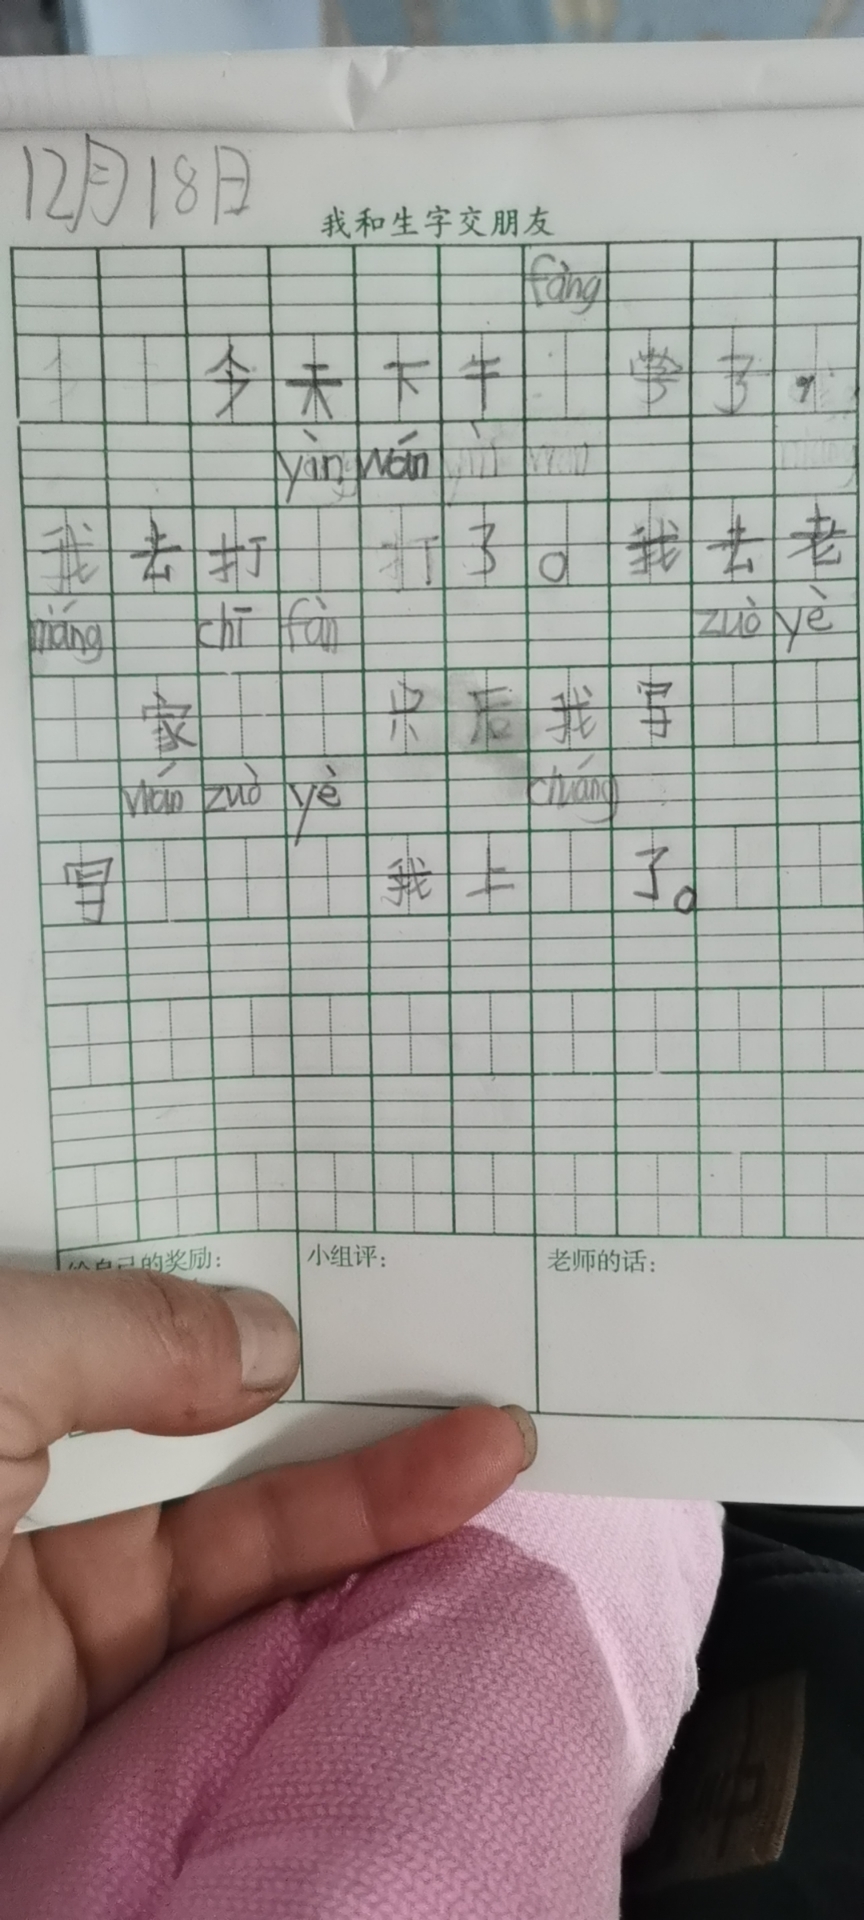 12月18日
我和生字交朋友
fàng
今天下午 学了,
yìn wán
我去打 打了。我去老
máng chī fàn zuò yè
家 只后我写
wán zuò yè cháng
写 我上 了。
给自己的奖励:
小组评:
老师的话: